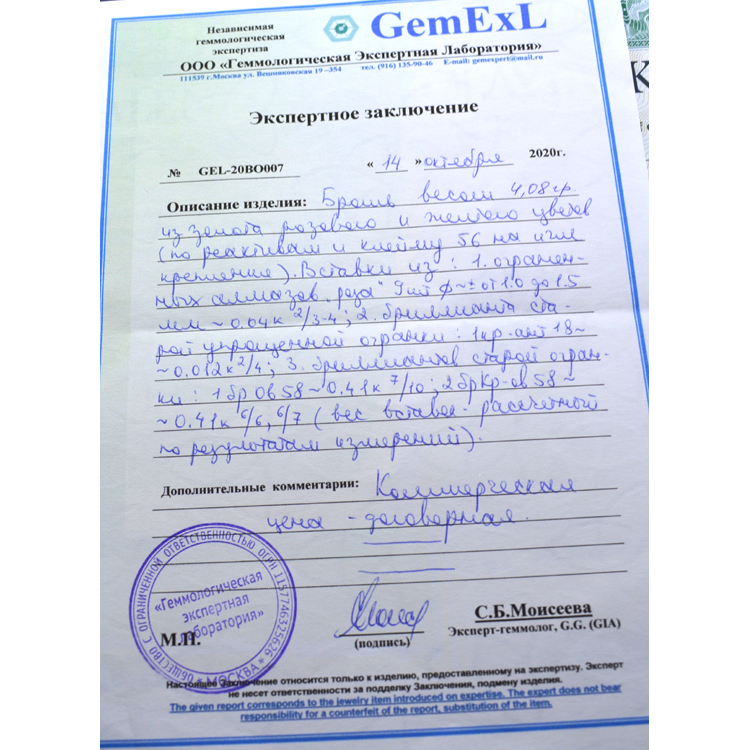 Независимая
геммологическая
экспертиза
GemExL
ООО «Геммологическая Экспертная Лаборатория»
111539 г.Москва ул. Вешняковская 19 –354 тел. (916) 135-90-46 E-mail: gemexpert@mail.ru
Экспертное заключение
№ GEL-20BO007 « 14 » октября 2020г.
Описание изделия: Брошь весом 4,08 гр.
из золота розового и желтого цветов
(по реактивам и клейму 56 на игле
крепление). Вставки из: 1. огранен-
ных алмазов "роза" 9 шт ф~± от 1.0 до 1.5
мм ~0.04к 2/3-4; 2. бриллианта ста-
рой упрощенной огранки: 1кр-ант 18~
~0.012к 2/4; 3. бриллиантов старой огран-
ки: 1 бр Ов 58 ~ 0.41к 7/10; 2 бр Кр-ов 58 ~
~0.41к 6/6, 6/7 (вес вставок расчетный
по результатам измерений).
Дополнительные комментарии: Коммерческая
цена - договорная.
ОБЩЕСТВО С ОГРАНИЧЕННОЙ ОТВЕТСТВЕННОСТЬЮ ОГРН 1157746325626
* МОСКВА *
«Геммологическая
экспертная
лаборатория»
М.П.
(подпись)
С.Б.Моисеева
Эксперт-геммолог, G.G. (GIA)
Настоящее Заключение относится только к изделию, предоставленному на экспертизу. Эксперт
не несет ответственности за подделку Заключения, подмену изделия.
The given report corresponds to the jewelry item introduced on expertise. The expert does not bear
responsibility for a counterfeit of the report, substitution of the item.